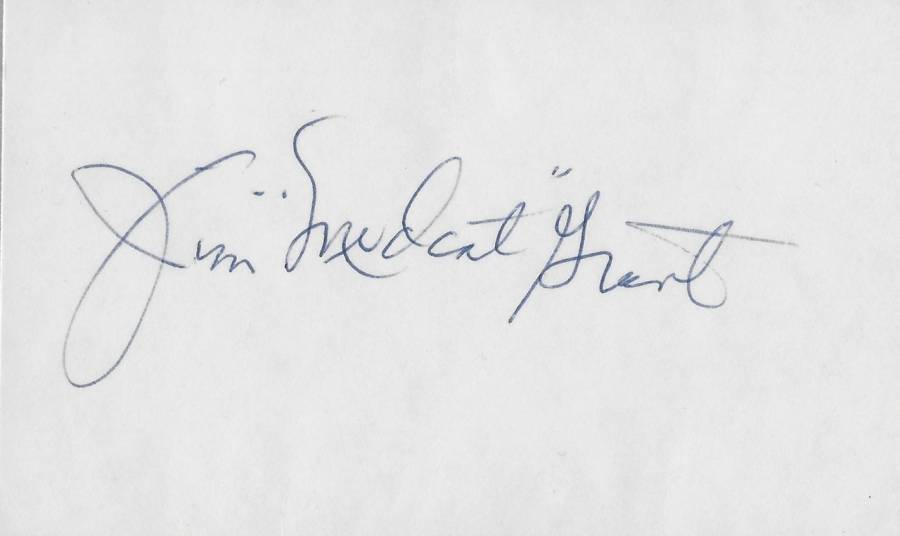 Jim "Mudcat" Grant